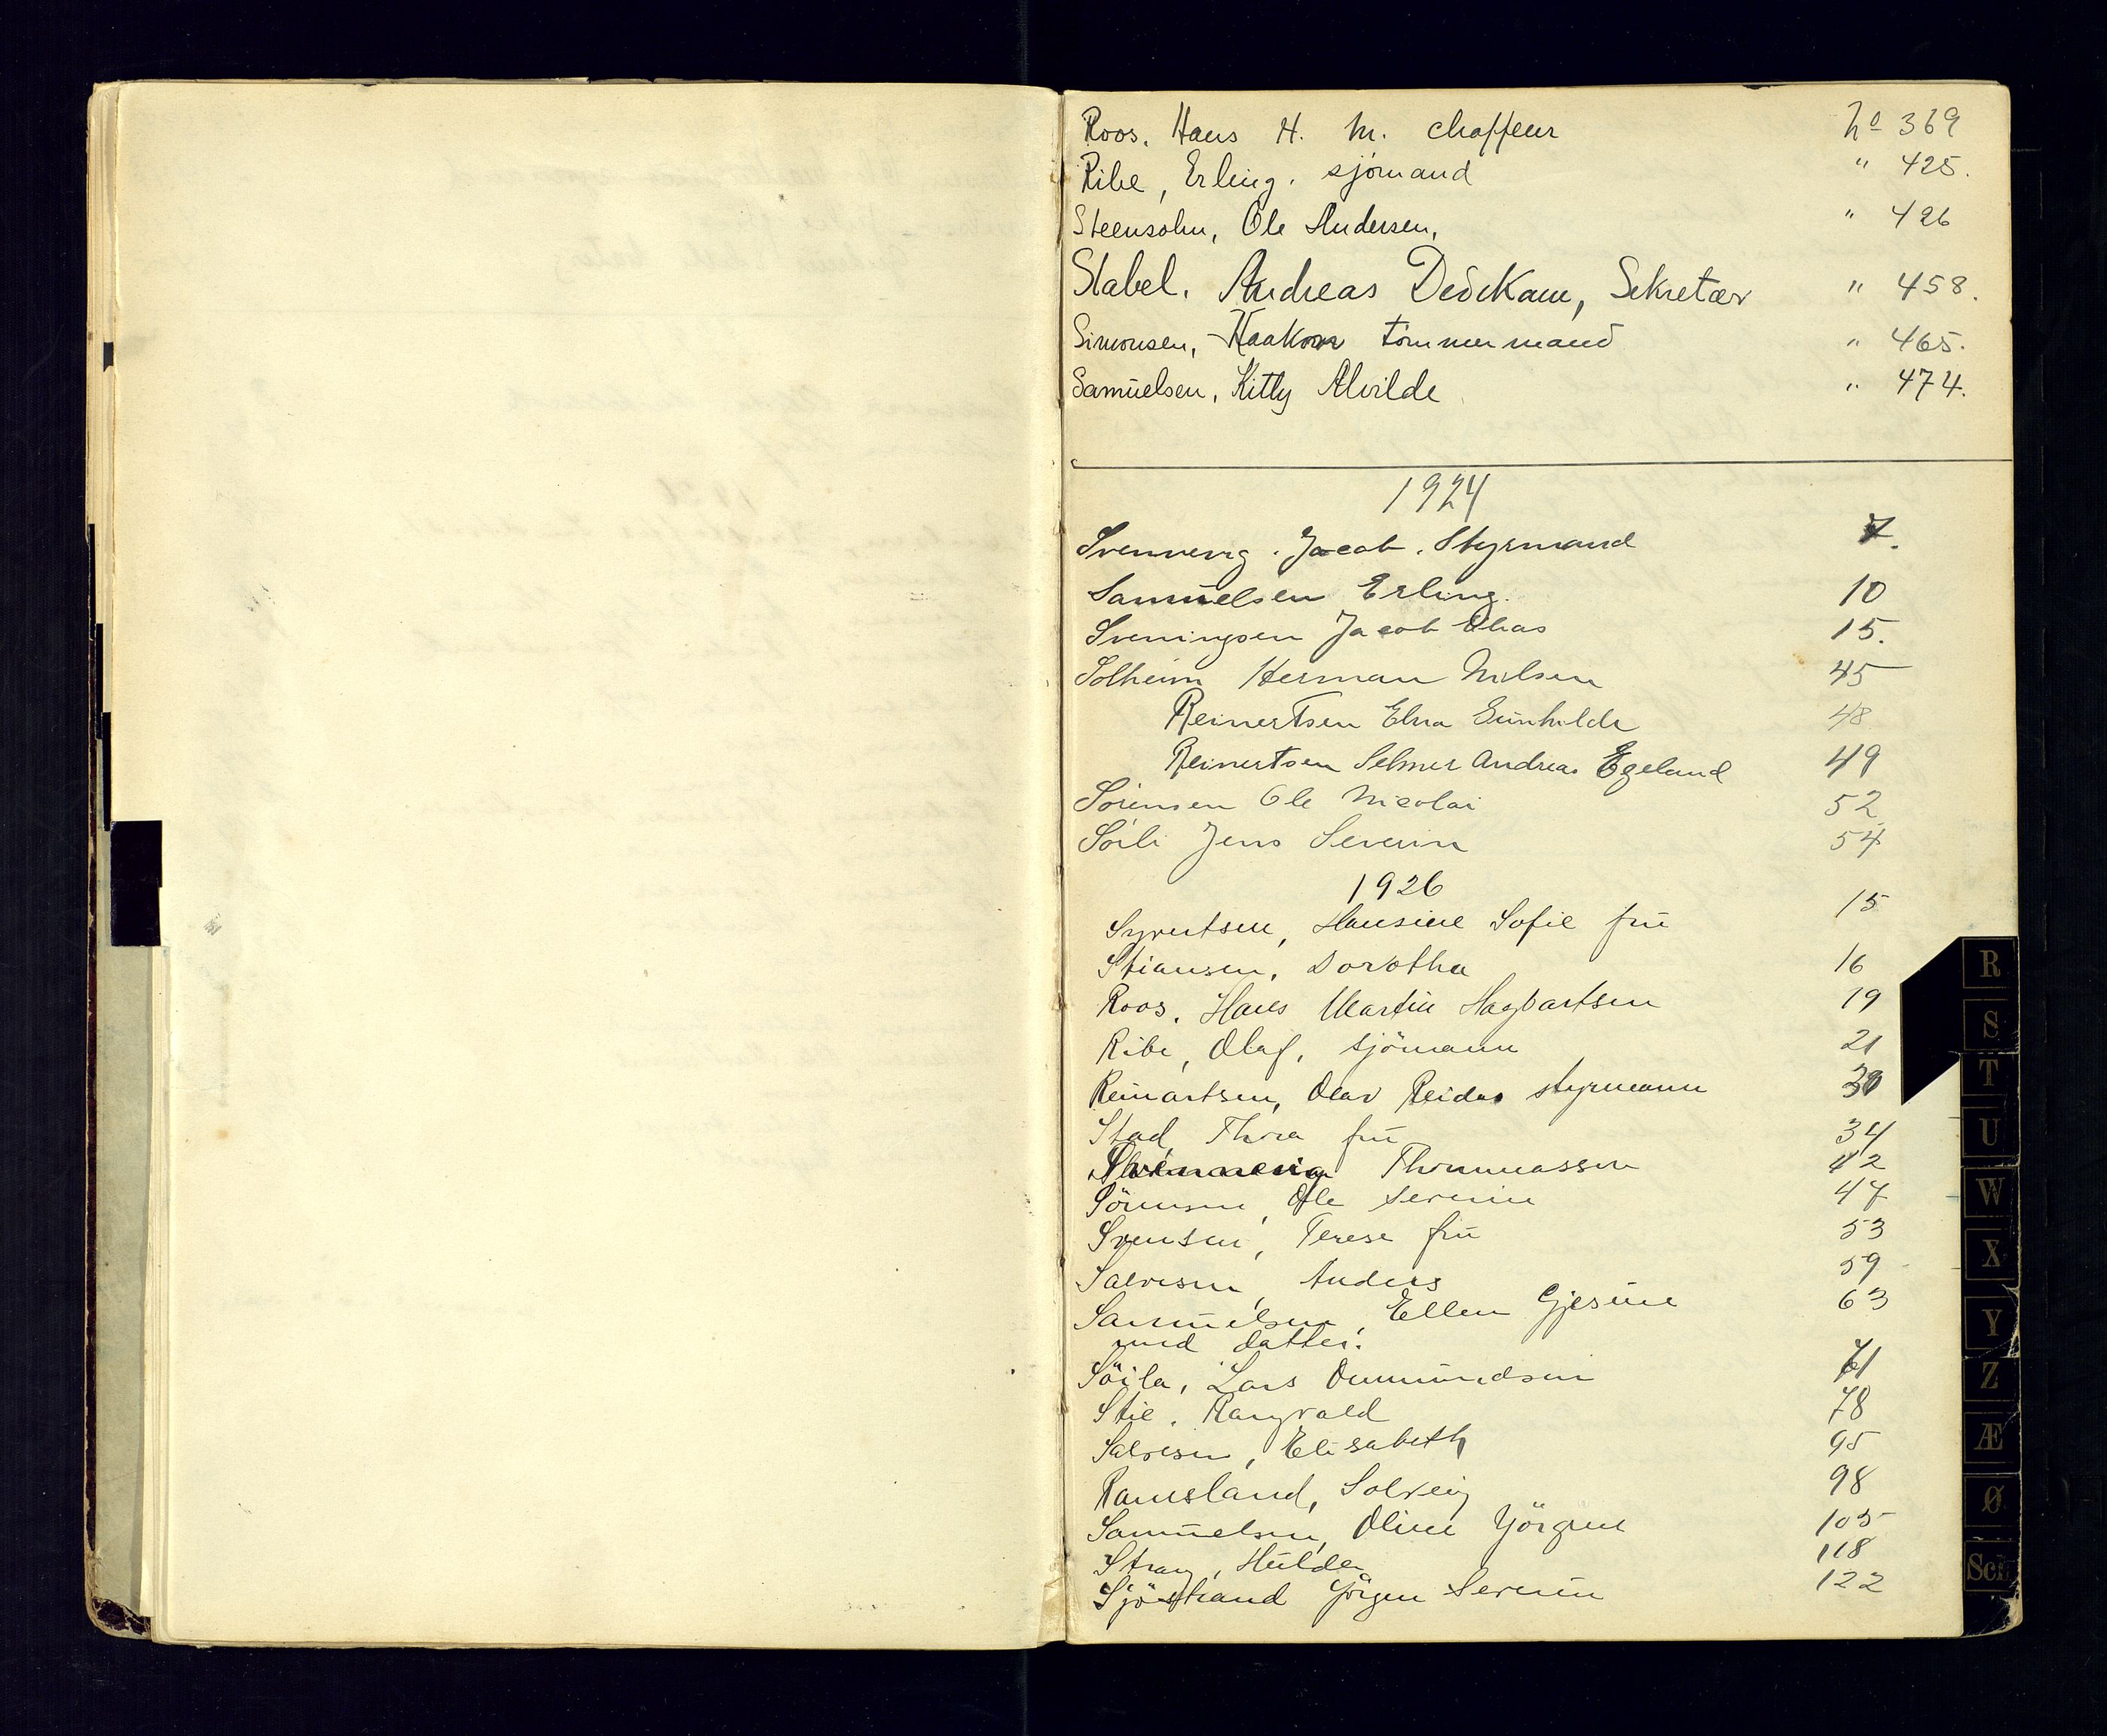 Roos. Hans H. M. chaffeur No 369
Ribe, Erling. sjömand " 425.
Steensohn, Ole Andersen, " 426
Stabel. Andreas Dedekam, Sekretær " 458.
Simonsen, Haakon tömmermand " 465.
Samuelsen, Kitty Alvilde " 474.
1924
Svennevig. Jacob. Styrmand 7.
Samuelsen Erling. 10
Sveningsen Jacob Elias 15.
Solheim Herman Nilsen 45
Reinertsen Elna Gunhilde 48
Reinertsen Selmer Andreas Egeland 49
Sörensen Ole Nicolai 52
Söili Jens Severin 54
1926
Syvertsen, Hansine Sofie frü 15
Stiansen, Dorothea 16
Roos. Hans Martin Hagbartsen 19
Ribe, Olaf, sjömann 21
Reinartsen, Olav Reidar styrmann 30
Stad, Thora frü 34
Svennevig Thommassen 42
Sörensen, Ole Severin 47
Svensen, Terese frü 53
Salvesen, Anders 59
Samüelsen, Ellen Gjesine 63
med datter.
Söila, Lars Ommündsen 71
Stie. Rangvald 78
Salvesen, Elisabeth 95
Ramsland, Solveig 98
Samüelsen, Oline Jörgine 105
Stray, Hülda 118
Sjöstrand Jörgen Severin 122
R
S
T
U
W
X
Y
Z
Æ
Ø
Sch